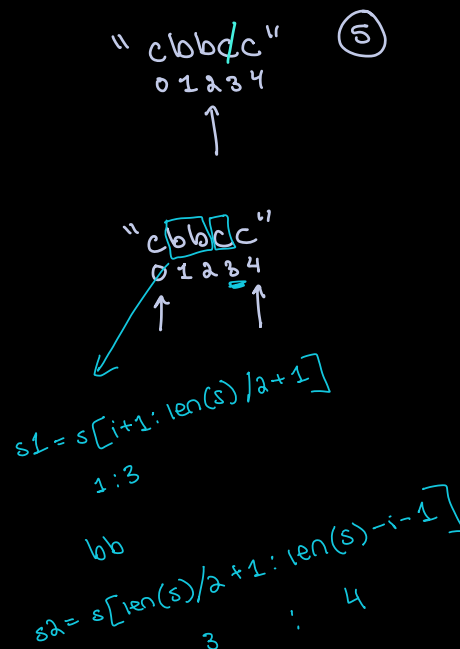 "cbbcc" 5
0 1 2 3 4
"cbbcc"
0 1 2 3 4
s1 = s[i+1 : len(s)/2+1]
1:3
bb
s2 = s[len(s)/2+1 : len(s)-i-1]
3 : 4